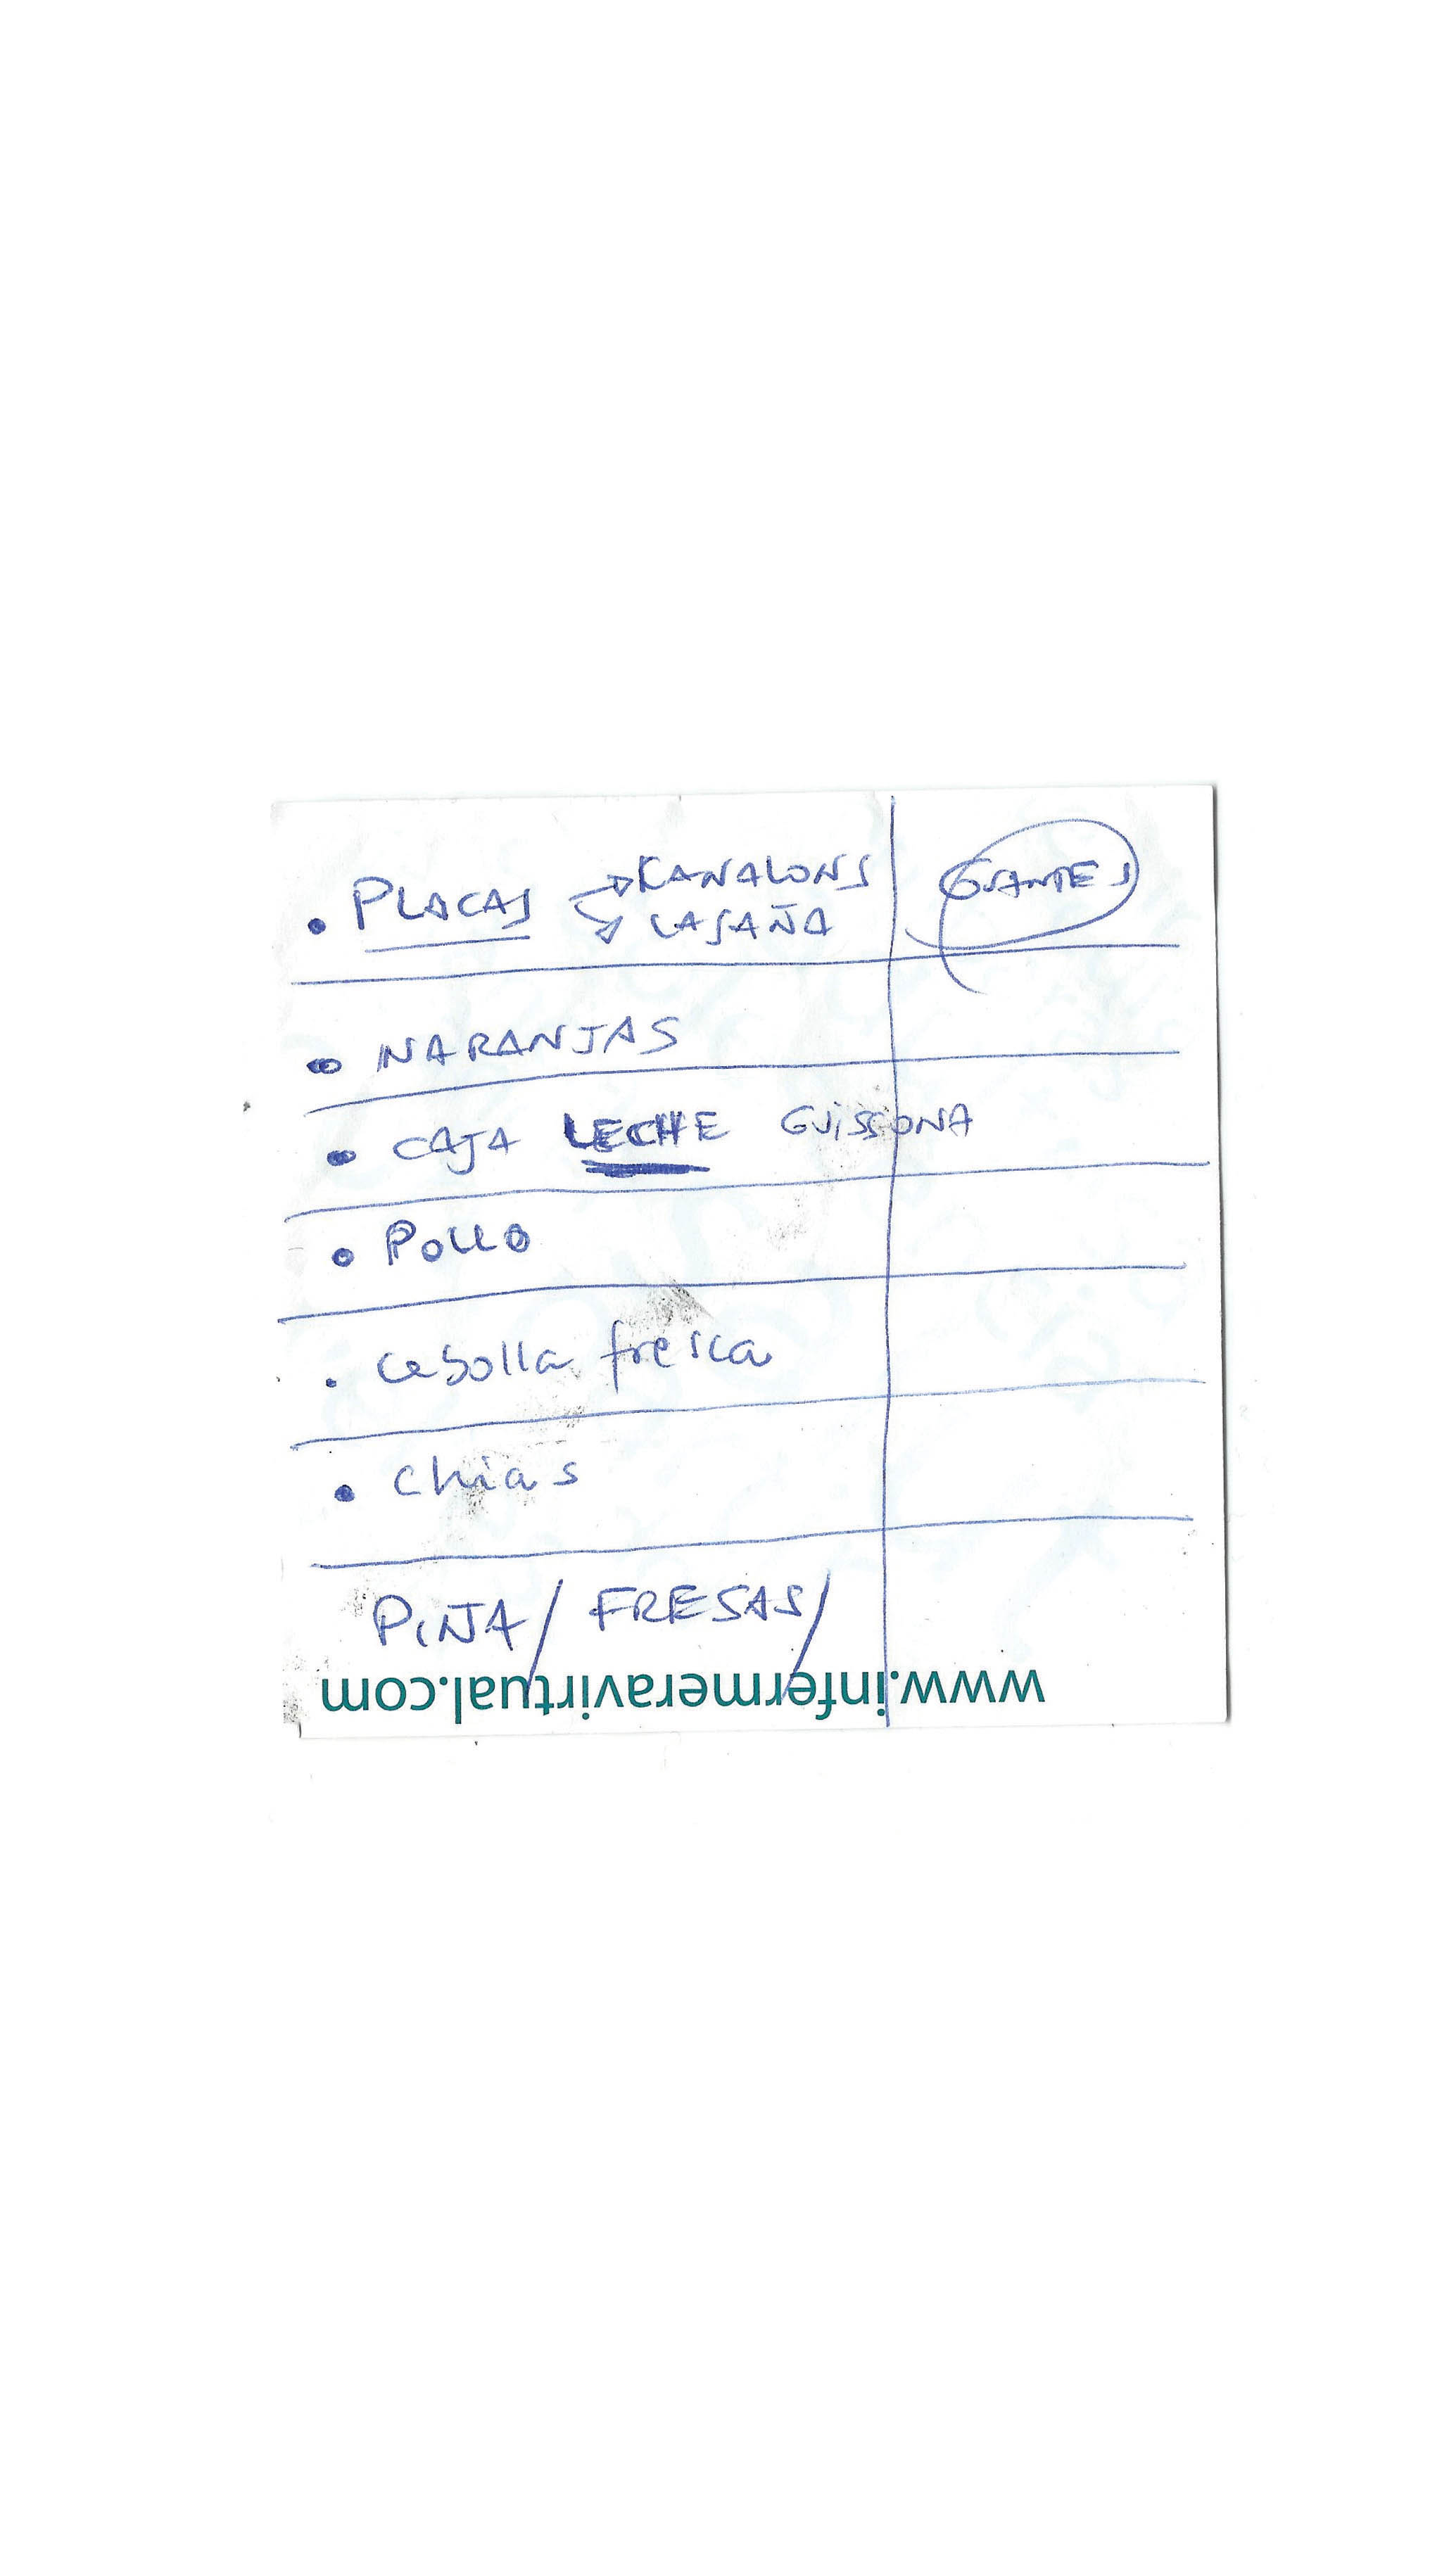 • PLACAS → KANALONS
→ LASAÑA
GUANTES
• NARANJAS
• CAJA LECHE GUISSONA
• POLLO
• cebolla fresca
• chias
PIÑA / FRESAS /
www.infermeravirtual.com